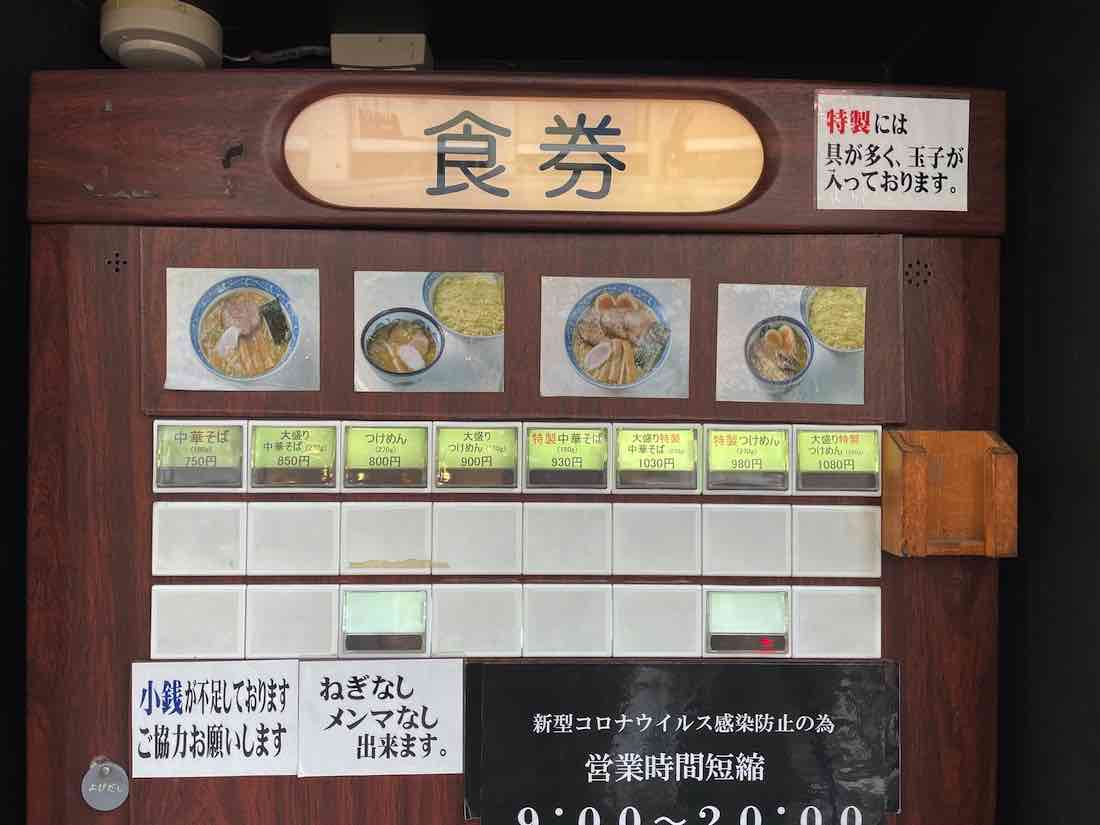 食券
特製には
具が多く、玉子が
入っております。
中華そば
(180g)
750円
大盛り
中華そば(270g)
850円
つけめん
(270g)
800円
大盛り
つけめん
900円
特製中華そば
(180g)
930円
大盛り特製
中華そば(270g)
1030円
特製つけめん
(270g)
980円
大盛り特製
つけめん
1080円
小銭が不足しております
ご協力お願いします
ねぎなし
メンマなし
出来ます。
新型コロナウイルス感染防止の為
営業時間短縮
9:00～20:00
よびだし